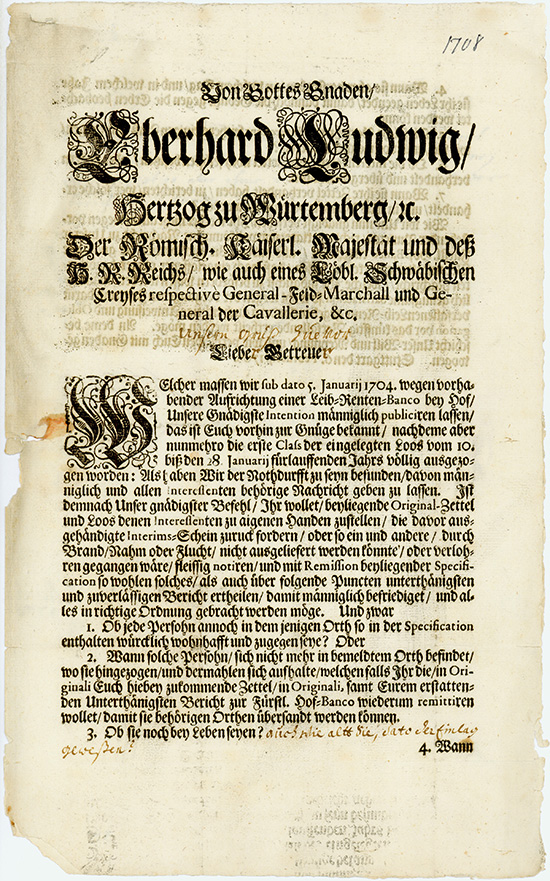 1708
Von Gottes Gnaden/
Eberhard Ludwig/
Hertzog zu Würtemberg/ ꝛc.
Der Römisch. Käiserl. Majestät und deß
H. R. Reichs/ wie auch eines Löbl. Schwäbischen
Creyses respective General-Feld-Marchall und Ge-
neral der Cavallerie, &c.
Unsern
Lieber Getreuer
WElcher massen wir sub dato 5. Januarij 1704. wegen vorha-
bender Auffrichtung einer Leib-Renten-Banco bey Hof/
Unsere Gnädigste Intention männiglich publiciren lassen/
das ist Euch vorhin zur Gnüge bekannt/ nachdeme aber
nunmehro die erste Class der eingelegten Loos vom 10.
biß den 28. Januarij fürlauffenden Jahrs völlig ausgezo-
gen worden: Alß haben Wir der Nothdurfft zu seyn befunden/ davon män-
niglich und allen Interessenten behörige Nachricht geben zu lassen. Ist
demnach Unser gnädigster Befehl/ Ihr wollet/ beyliegende Original-Zettel
und Loos denen Interessenten zu aigenen Handen zustellen/ die davor aus-
gehändigte Interims-Schein zuruck fordern/ oder so ein und andere/ durch
Brand/ Nahm oder Flucht/ nicht ausgeliefert werden könnte/ oder verloh-
ren gegangen wäre/ fleissig notiren/ und mit Remission beyliegender Specifi-
cation so wohlen solches/ als auch über folgende Puncten unterthänigsten
und zuverlässigen Bericht ertheilen/ damit männiglich befriediget/ und al-
les in richtige Ordnung gebracht werden möge. Und zwar
1. Ob jede Persohn annoch in dem jenigen Orth so in der Specification
enthalten würcklich wohnhafft und zugegen seye? Oder
2. Wann solche Persohn/ sich nicht mehr in bemeldtem Orth befindet/
wo sie hingezogen/ und dermahlen sich auffhalte/ welchen falls Ihr die/ in Ori-
ginali Euch hiebey zukommende Zettel/ in Originali, samt Eurem erstatten-
den Unterthänigsten Bericht zur Fürstl. Hof-Banco wiederum remittiren
wollet/ damit sie behörigen Orthen übersandt werden können.
3. Ob sie noch bey Leben seyen? auch wie alt sie, dato der Einlag
geweßen?
4. Wann